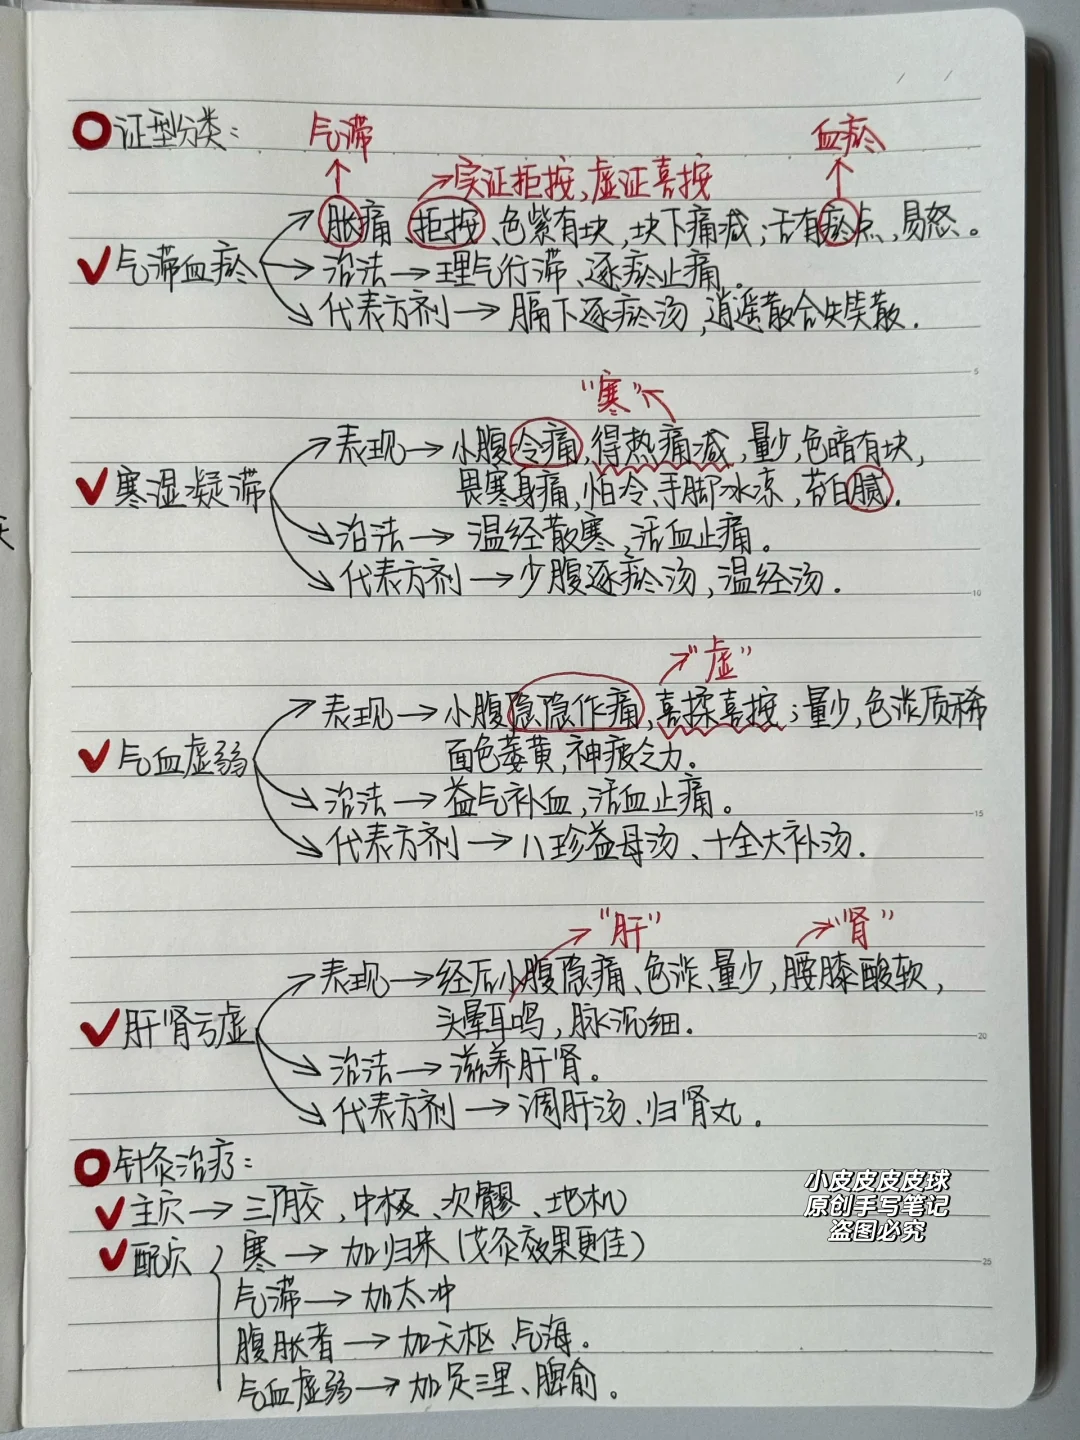 ○证型分类:
气滞 血瘀
实证拒按,虚证喜按
胀痛、拒按、色紫有块,块下痛减;舌有瘀点,易怒。
✓气滞血瘀
治法→理气行滞、逐瘀止痛。
代表方剂→膈下逐瘀汤,逍遥散合失笑散.
“寒”
表现→小腹冷痛,得热痛减,量少,色暗有块,
✓寒湿凝滞
畏寒身痛,怕冷、手脚冰凉,苔白腻.
治法→温经散寒、活血止痛。
代表方剂→少腹逐瘀汤,温经汤.
“虚”
表现→小腹隐隐作痛,喜揉喜按;量少,色淡质稀
✓气血虚弱
面色萎黄,神疲乏力.
治法→益气补血,活血止痛。
代表方剂→八珍益母汤、十全大补汤.
“肝” “肾”
表现→经后小腹隐痛、色淡、量少,腰膝酸软,
✓肝肾亏虚
头晕耳鸣,脉沉细.
治法→滋养肝肾。
代表方剂→调肝汤、归肾丸。
○针灸治疗:
✓主穴→三阴交、中极、次髎、地机
✓配穴
寒→加归来(艾灸效果更佳)
气滞→加太冲
腹胀者→加天枢、气海。
气血虚弱→加足三里、脾俞。
小皮皮皮皮球
原创手写笔记
盗图必究
5
10
15
20
25